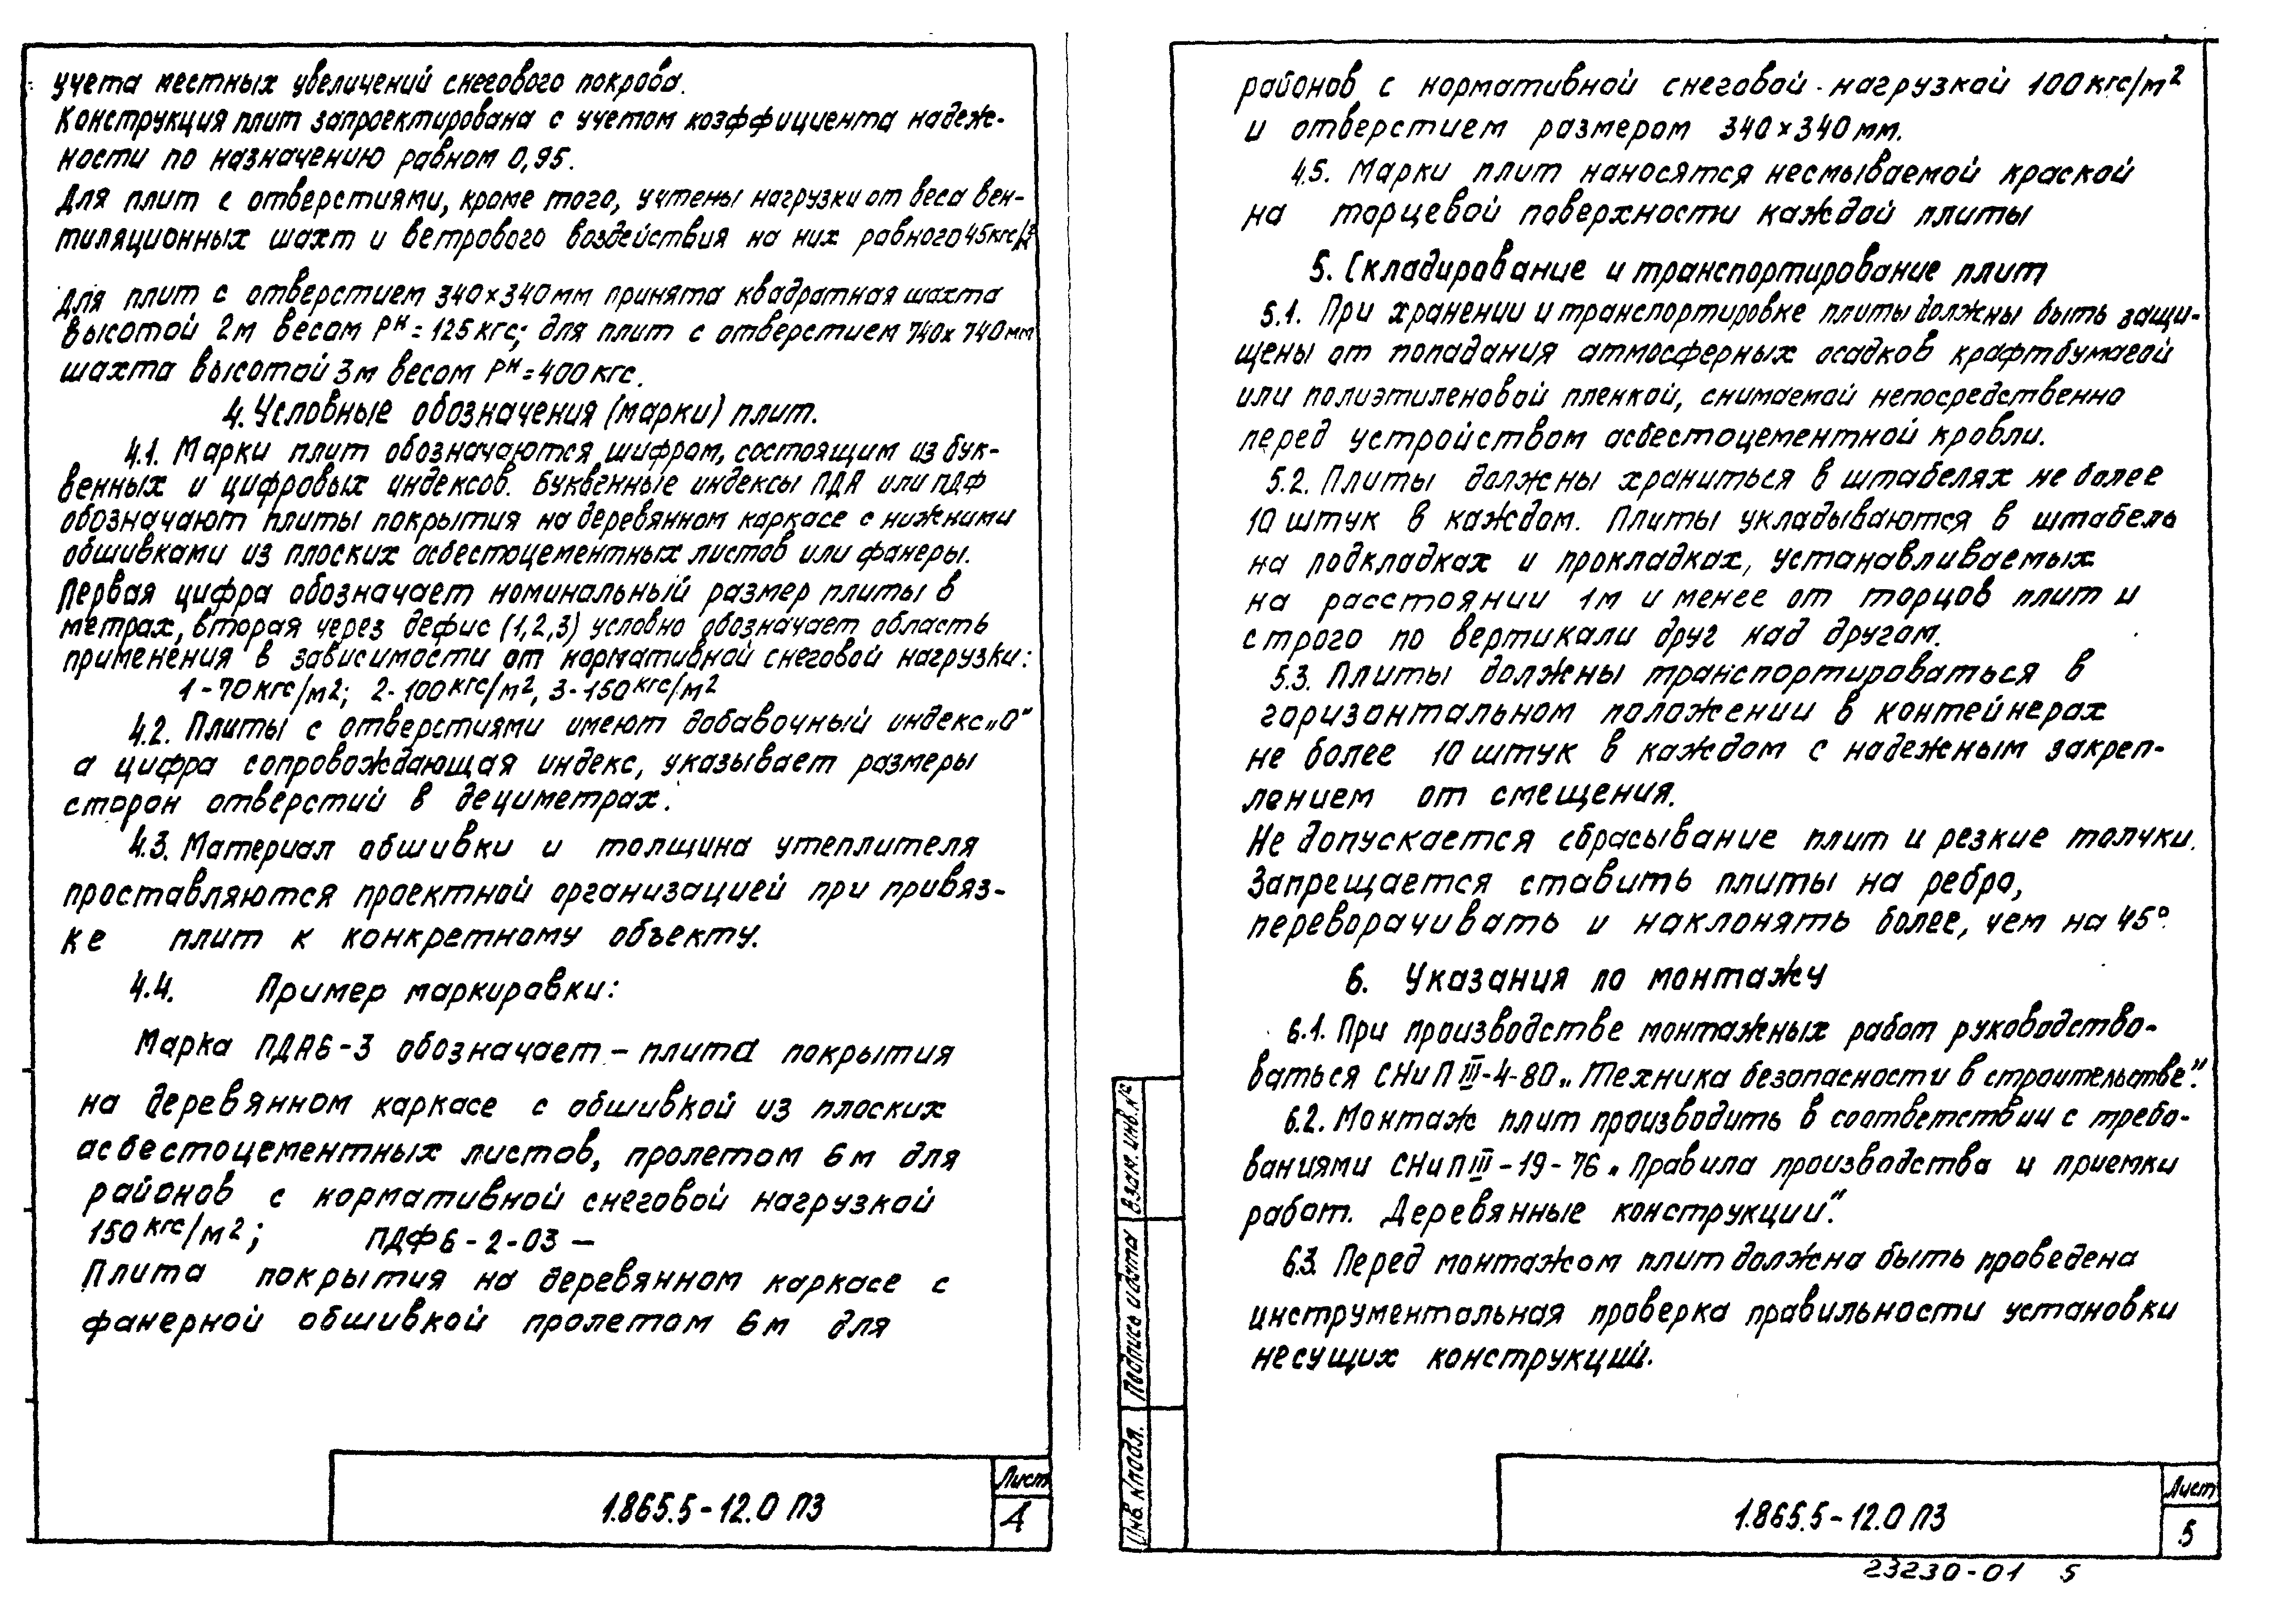 учета местных увеличений снегового покрова.
Конструкция плит запроектирована с учетом коэффициента надеж-
ности по назначению равном 0,95.
Для плит с отверстиями, кроме того, учтены нагрузки от веса вен-
тиляционных шахт и ветрового воздействия на них равного 45кгс/м²
Для плит с отверстием 340×340мм принята квадратная шахта
высотой 2м весом Pᴴ=125кгс; для плит с отверстием 740х740мм
шахта высотой 3м весом Pᴴ=400кгс.
4. Условные обозначения (марки) плит.
4.1. Марки плит обозначаются шифром, состоящим из бук-
венных и цифровых индексов. Буквенные индексы ПДА или ПДФ
обозначают плиты покрытия на деревянном каркасе с нижними
обшивками из плоских асбестоцементных листов или фанеры.
Первая цифра обозначает номинальный размер плиты в
метрах, вторая через дефис (1,2,3) условно обозначает область
применения в зависимости от нормативной снеговой нагрузки:
1-70кгс/м2; 2-100кгс/м², 3-150кгс/м²
4.2. Плиты с отверстиями имеют добавочный индекс „О"
а цифра сопровождающая индекс, указывает размеры
сторон отверстий в дециметрах.
4.3. Материал обшивки и толщина утеплителя
проставляются проектной организацией при привяз-
ке плит к конкретному объекту.
4.4. Пример маркировки:
Марка ПДА6-3 обозначает – плита покрытия
на деревянном каркасе с обшивкой из плоских
асбестоцементных листов, пролетом 6м для
районов с нормативной снеговой нагрузкой
150 кгс/м²; ПДФ6-2-03 —
Плита покрытия на деревянном каркасе с
фанерной обшивкой пролетом 6м для
1.865.5-12.0 ПЗ
Лист
4
районов с нормативной снеговой нагрузкой 100кгс/м²
и отверстием размером 340×340мм.
4.5. Марки плит наносятся несмываемой краской
на торцевой поверхности каждой плиты
5. Складирование и транспортирование плит
5.1. При хранении и транспортировке плиты должны быть защи-
щены от попадания атмосферных осадков крафтбумагой
или полиэтиленовой пленкой, снимаемой непосредственно
перед устройством асбестоцементной кровли.
5.2. Плиты должны храниться в штабелях не более
10 штук в каждом. Плиты укладываются в штабель
на подкладках и прокладках, устанавливаемых
на расстоянии 1м и менее от торцов плит и
строго по вертикали друг над другом.
5.3. Плиты должны транспортироваться в
горизонтальном положении в контейнерах
не более 10 штук в каждом с надежным закреп-
лением от смещения.
Не допускается сбрасывание плит и резкие толчки.
Запрещается ставить плиты на ребро,
переворачивать и наклонять более, чем на 45°.
6. Указания по монтажу
6.1. При производстве монтажных работ руководство-
ваться СНиП III-4-80 „Техника безопасности в строительстве".
6.2. Монтаж плит производить в соответствии с требо-
ваниями СНиП III-19-76 „Правила производства и приемки
работ. Деревянные конструкции".
6.3. Перед монтажом плит должна быть проведена
инструментальная проверка правильности установки
несущих конструкций.
Взам. инв. №
Подпись и дата
Инв. № подл.
1.865.5-12.0 ПЗ
Лист
5
23230-01 5